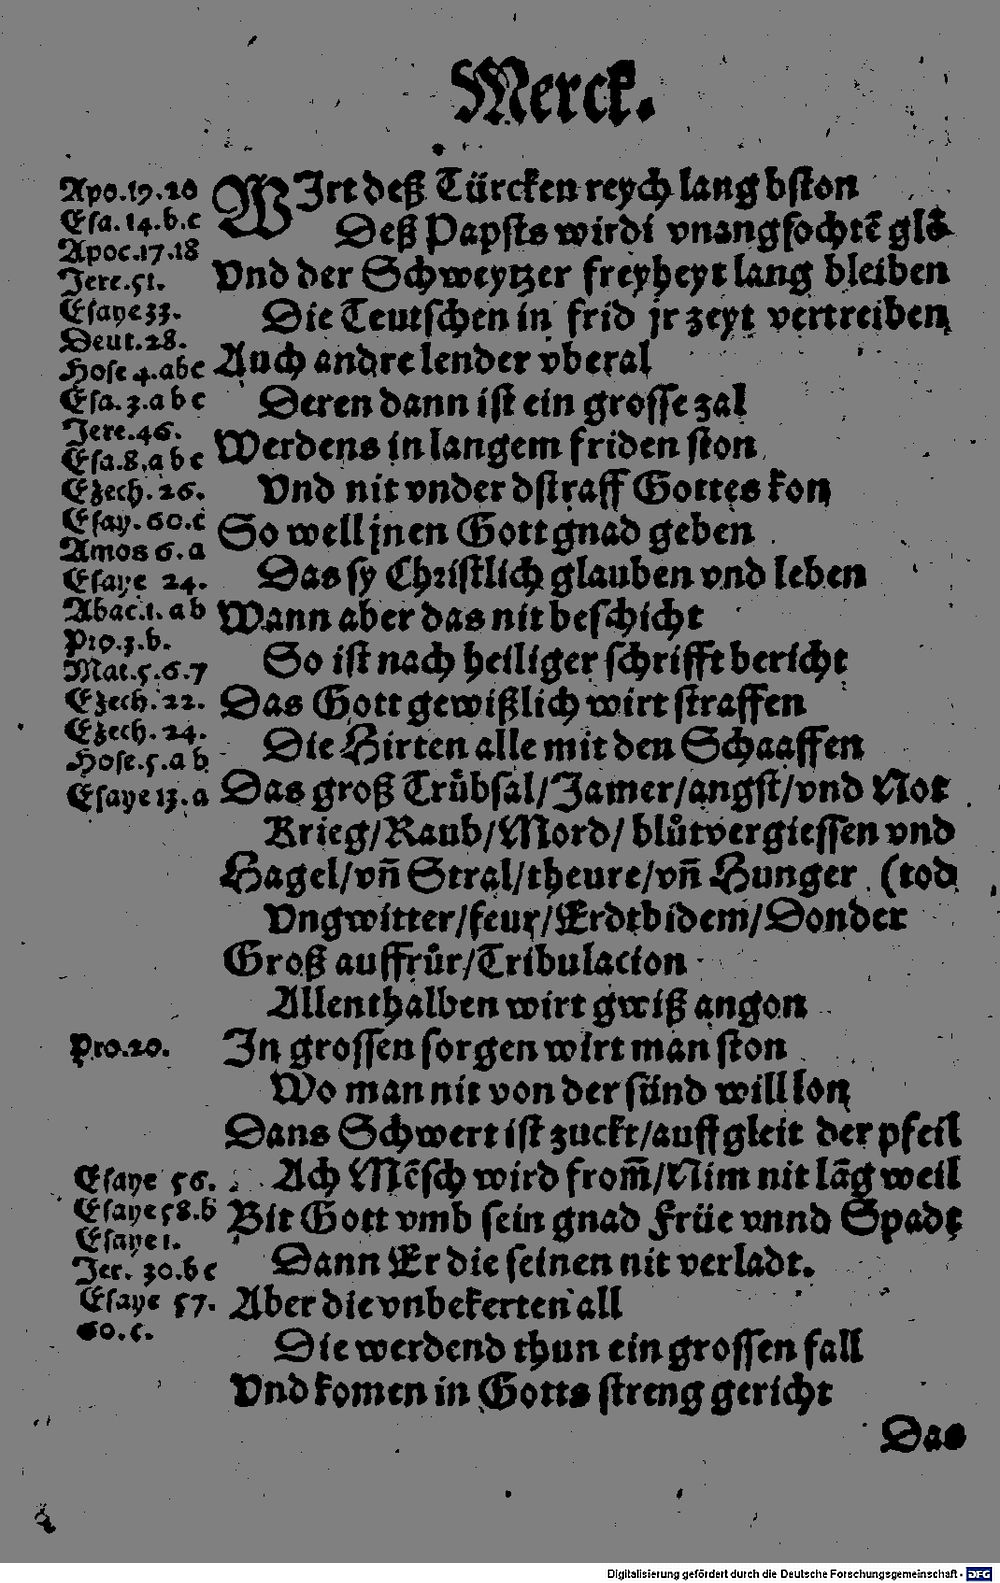 Merck.
Apo.19.20
Esa.14.b.c
Apoc.17.18
Jere.51.
Esaye 33.
Deut.28.
Hose 4.abc
Esa.3.a b c
Jere.46.
Esa.8.a b c
Ezech.26.
Esay.60.c
Amos 6.a
Esaye 24.
Abac.1.ab
Pro.3.b.
Mat.5.6.7
Ezech.22.
Ezech.24.
Hose.5.a b
Esaye 13.a
WIrt deß Türcken reych lang bston
Deß Papsts wirdi vnangfochtẽ
Vnd der Schweytzer freyheyt lang bleiben
Die Teutschen in frid jr zeyt vertreiben
Auch andre lender vberal
Deren dann ist ein grosse zal
Werdens in langem friden ston
Vnd nit vnder dstraff Gottes kon
So well jnen Gott gnad geben
Das sy Christlich glauben vnd leben
Wann aber das nit beschicht
So ist nach heiliger schrifft bericht
Das Gott gewißlich wirt straffen
Die Hirten alle mit den Schaaffen
Das groß Trübsal/Jamer/angst/vnd Not
Krieg/Raub/Mord/blůtvergiessen vnd
Hagel/vñ Stral/theure/vñ Hunger (tod
Vngwitter/feur/Erdtbidem/Donder
Groß auffrůr/Tribulacion
Allenthalben wirt gwiß angon
Pro.20.
In grossen sorgen wirt man ston
Wo man nit von der sünd will lon
Dans Schwert ist zuckt/auff gleit der pfeil
Esaye 56.
Esaye 58.b
Esaye 1.
Jer. 30.b c
Esaye 57.
60.c.
Ach Mẽsch wird from̃/Nim nit lãg weil
Bit Gott vmb sein gnad Früe vnnd Spadt
Dann Er die seinen nit verladt.
Aber die vnbekerten all
Die werdend thun ein grossen fall
Vnd komen in Gotts streng gericht
Das
Digitalisierung gefördert durch die Deutsche Forschungsgemeinschaft - DFG